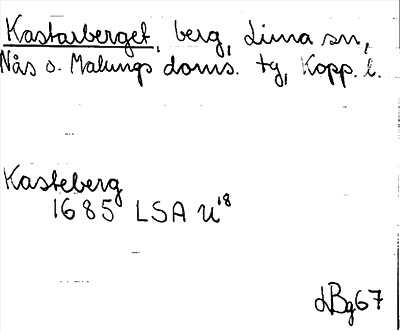 Kastarberget, berg, Lima sn,
Nås o. Malungs doms. tg, Kopp. l.
Kasteberg
1685 LSA U¹⁸
LBg67